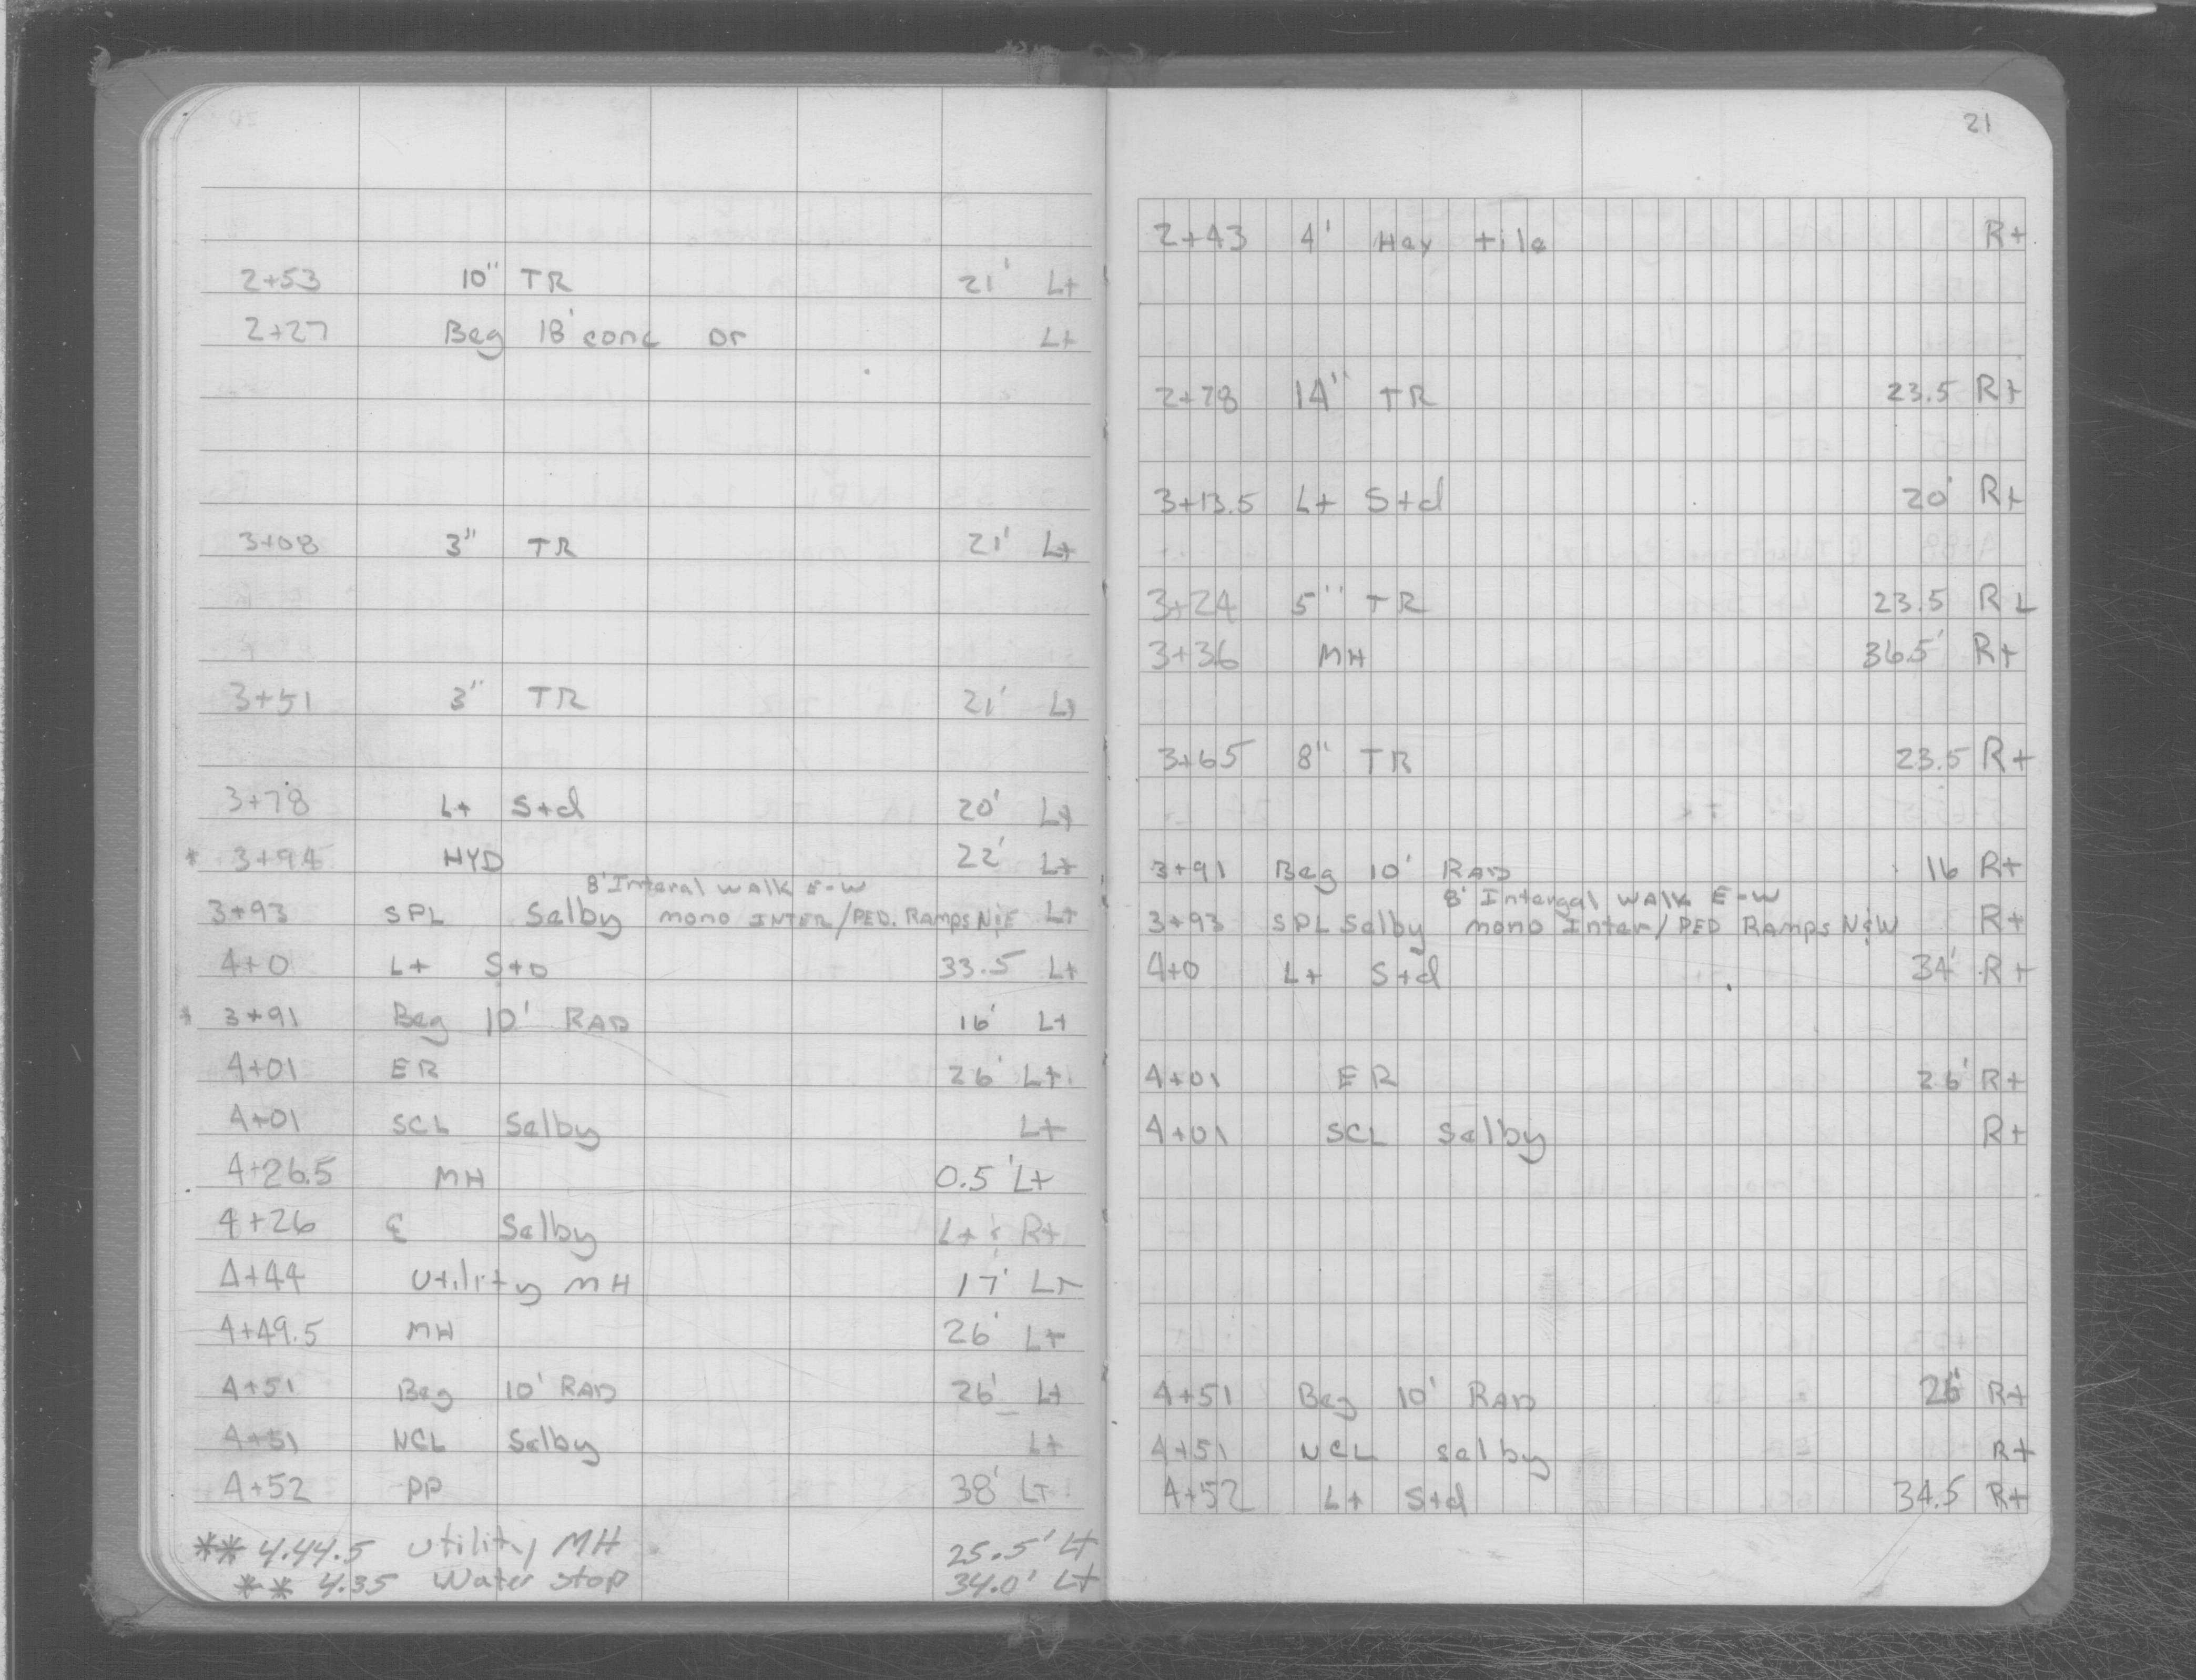 2+53 10" TR 21' Lt
2+27 Beg 18' conc Dr Lt
3+08 3" TR 21' Lt
3+51 3" TR 21' Lt
3+78 Lt Std 20' Lt
* 3+94 HYD 22' Lt
8' Interal walk E-W
3+93 SPL Selby mono INTER/PED. Ramps N&E Lt
4+0 Lt StD 33.5 Lt
* 3+91 Beg 10' RAD 16' Lt
4+01 ER 26' Lt
4+01 SCL Selby Lt
4+26.5 MH 0.5' Lt
4+26 ₵ Selby Lt & Rt
4+44 Utility MH 17' Lt
4+49.5 MH 26' Lt
4+51 Beg 10' RAD 26' Lt
4+51 NCL Selby Lt
4+52 PP 38' Lt
** 4.44.5 Utility MH 25.5' Lt
** 4.35 Water stop 34.0' Lt
21
2+43 4' Hex tile Rt
2+78 14" TR 23.5 Rt
3+13.5 Lt Std 20' Rt
3+24 5" TR 23.5 Rt
3+36 MH 36.5' Rt
3+65 8" TR 23.5 Rt
3+91 Beg 10' RAD 16 Rt
8' Intergal walk E-W
3+93 SPL Selby mono Inter/PED Ramps N&W Rt
4+0 Lt Std 34' Rt
4+01 ER 26' Rt
4+01 SCL Selby Rt
4+51 Beg 10' RAD 26' Rt
4+51 NCL Selby Rt
4+52 Lt Std 34.5 Rt